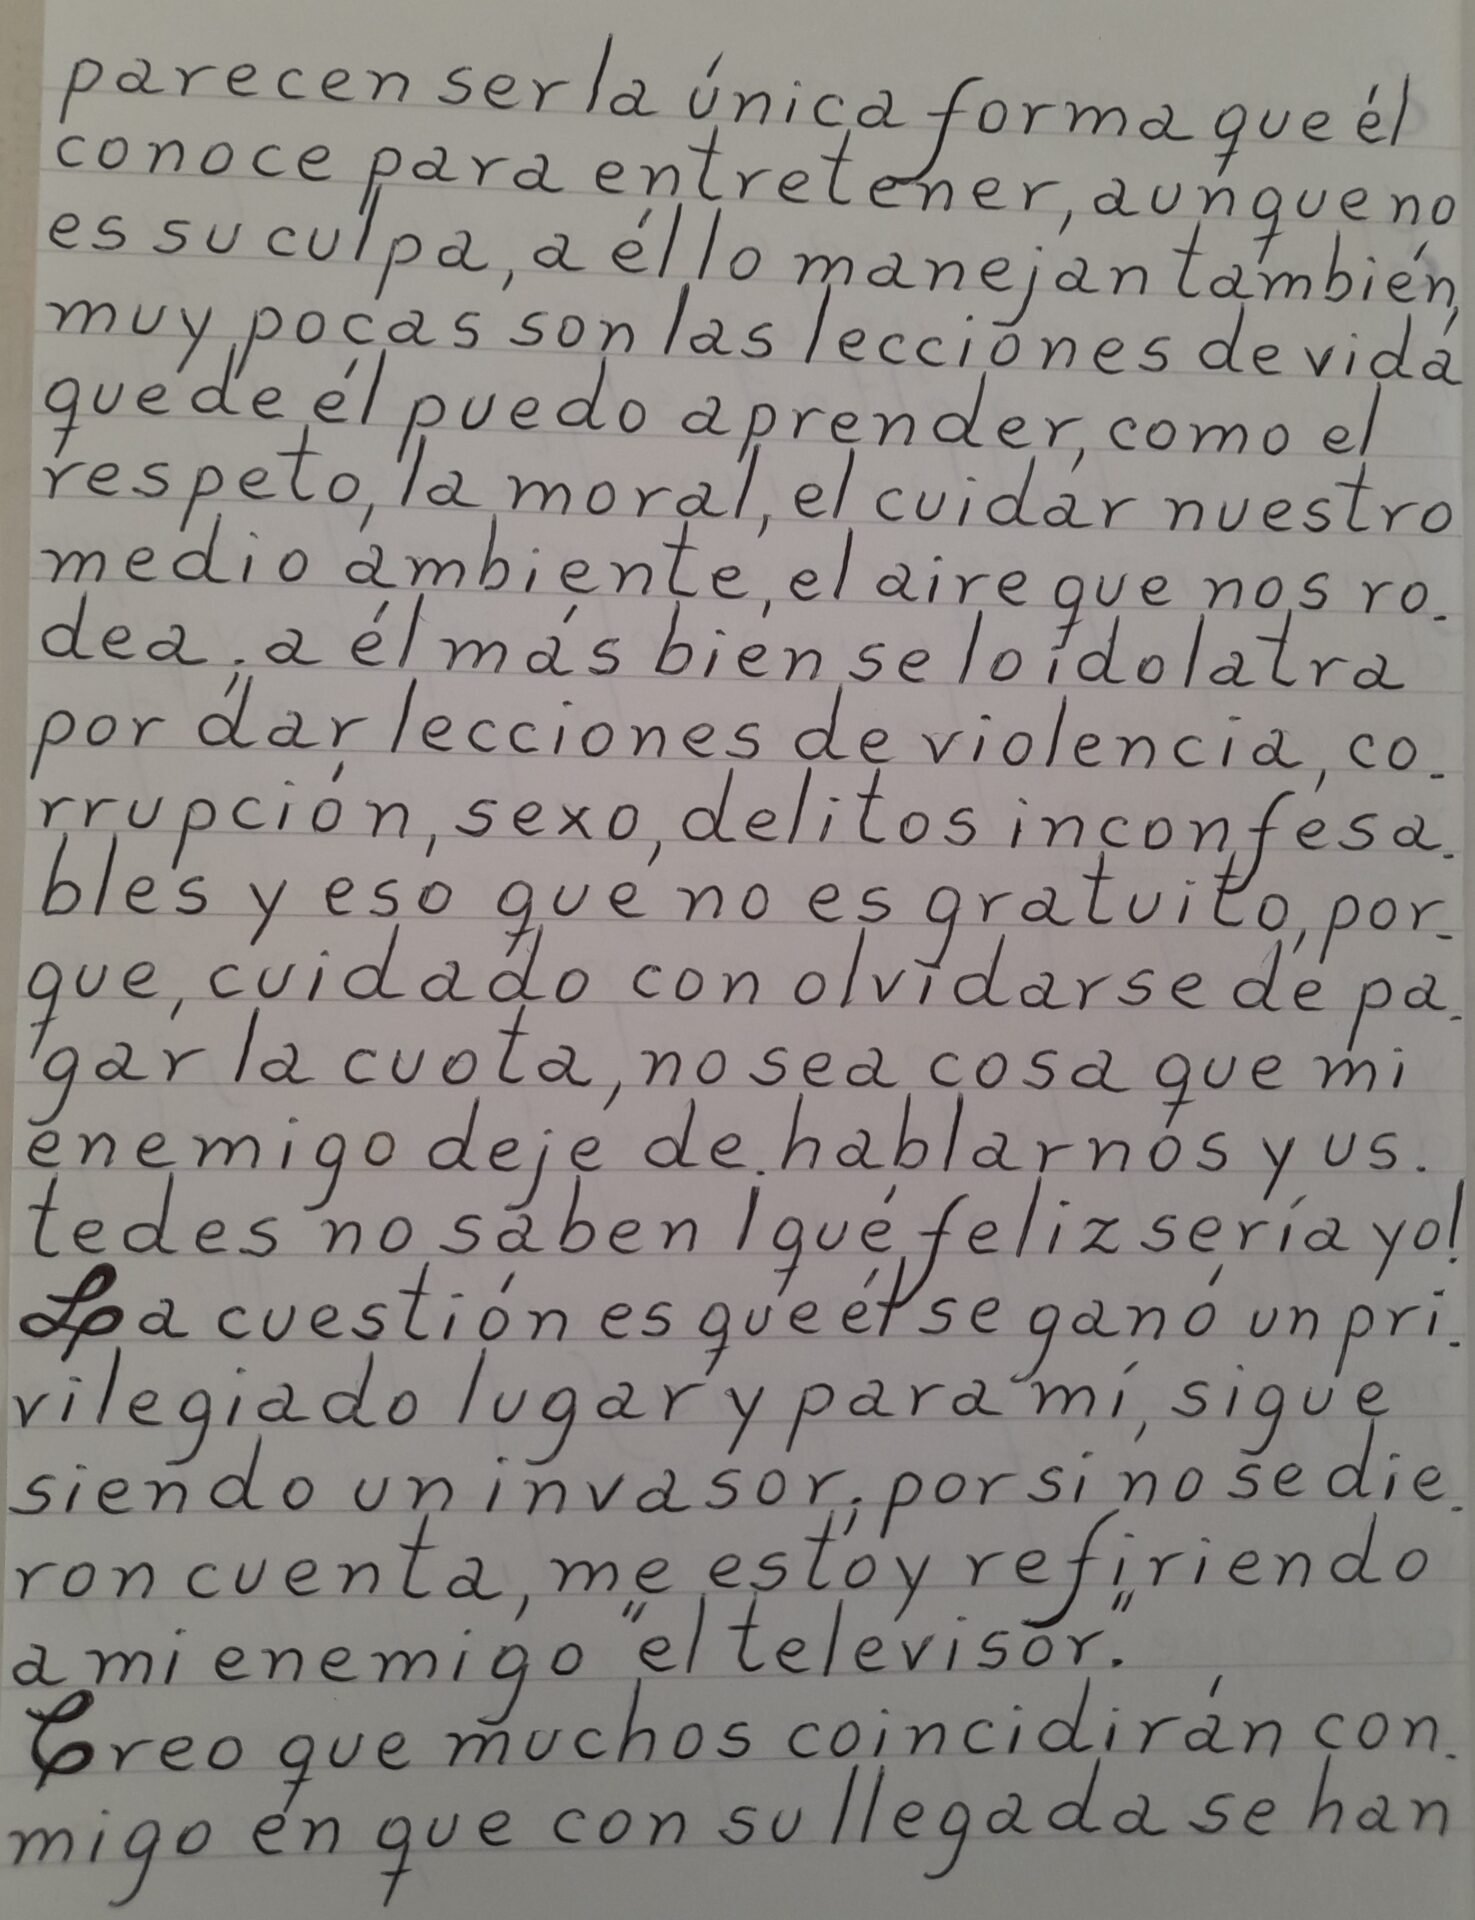 parecen ser la única forma que él
conoce para entretener, aunque no
es su culpa, a él lo manejan también,
muy pocas son las lecciones de vida
que de él puedo aprender, como el
respeto, la moral, el cuidar nuestro
medio ambiente, el aire que nos ro-
dea; a él más bien se lo idolatra
por dar lecciones de violencia, co-
rrupción, sexo, delitos inconfesa-
bles y eso que no es gratuito, por-
que, cuidado con olvidarse de pa-
gar la cuota, no sea cosa que mi
enemigo deje de hablarnos y us-
tedes no saben ¡qué feliz sería yo!
La cuestión es que él se ganó un pri-
vilegiado lugar y para mí, sigue
siendo un invasor; por si no se die-
ron cuenta, me estoy refiriendo
a mi enemigo "el televisor."
Creo que muchos coincidirán con-
migo en que con su llegada se han